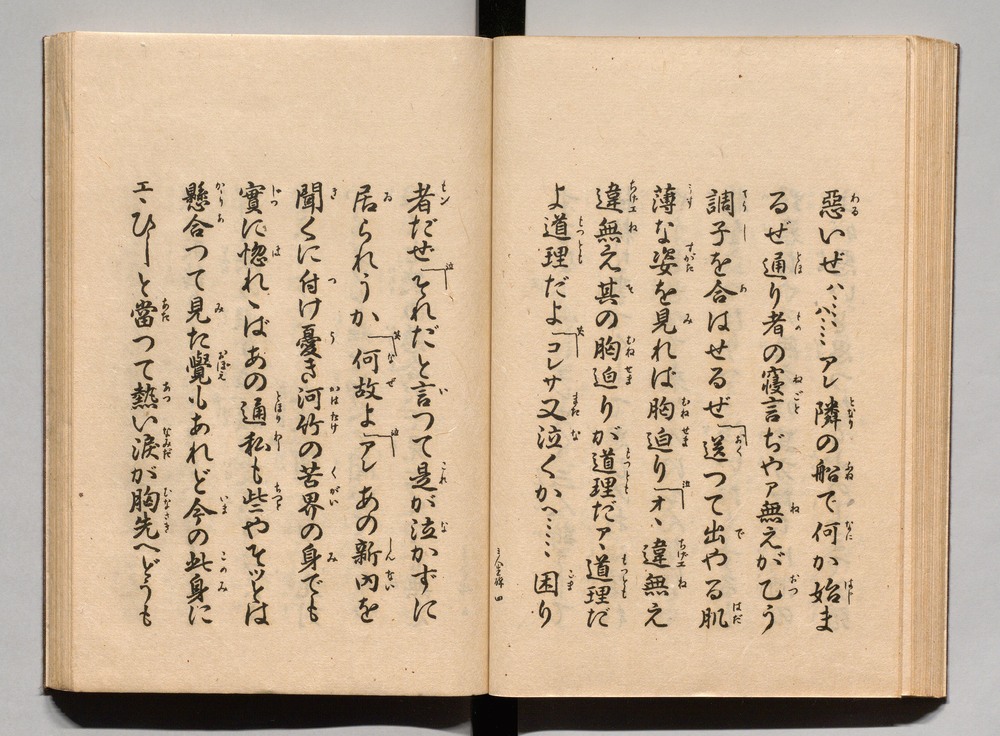 惡いぜハ……ハ……アレ隣の船で何か始ま
るぜ通り者の寢言ぢやァ無えが乙う
調子を合はせるぜ「送つて出やる肌
薄な姿を見れば胸迫り「オヽ違無え
違無え其の胸迫りが道理だアヽ道理だ
よ道理だよ「コレサ又泣くかヘ……困り
者だぜ「それだと言つて是が泣かずに
居られうか「何故よ「アレあの新内を
聞くに付け憂き河竹の苦界の身でも
實に惚れヽばあの通私も些やそッとは
懸合つて見た覺もあれど今の此身に
エヽひしと當つて熱い涙が胸先へどうも